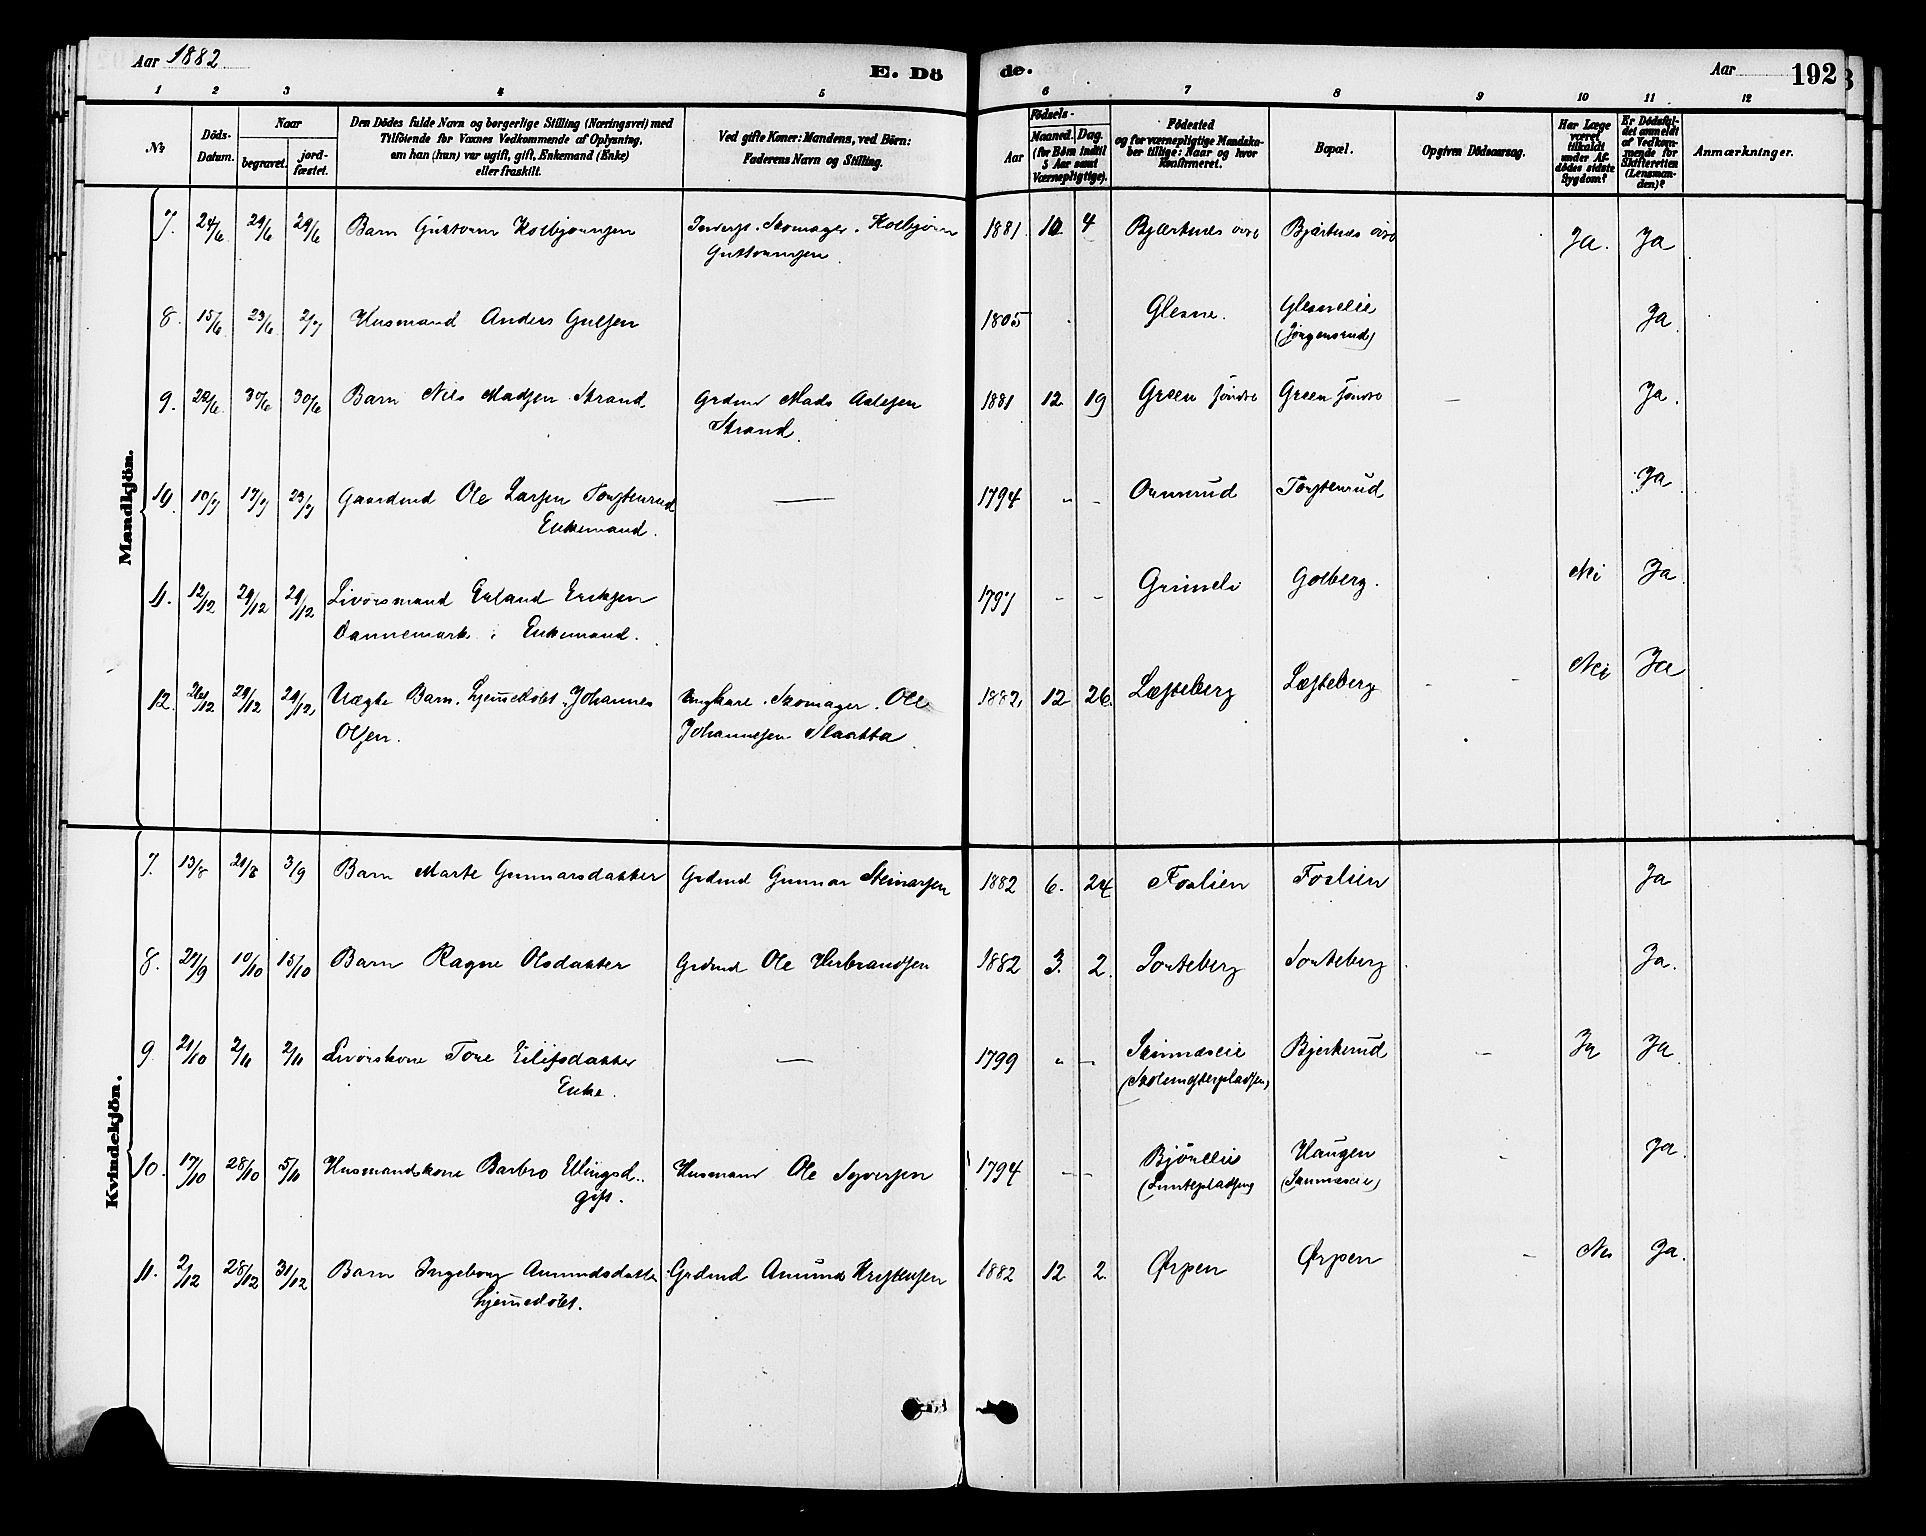 Aar 1882
E. Dö
de.
Aar
192
1 2 3 4 5 6 7 8 9 10 11 12
No
Döds-
Datum.
Naar
begravet.
jord-
fæstet.
Den Dödes fulde Navn og borgerlige Stilling (Næringsvei) med
Tilföiende for Voxnes Vedkommende af Oplysning,
om han (hun) var ugift, gift, Enkemand (Enke)
eller fraskilt.
Ved gifte Koner: Mandens, ved Börn:
Faderens Navn og Stilling.
Födsels-
Aar
Maaned. Dag.
(for Börn indtil
5 Aar samt
Værnepligtige).
Födested
og for værnepligtige Mandska-
ber tillige: Naar og hvor
konfirmeret.
Bopæl.
Opgiven Dödsaarsag.
Har Læge
været
tilkaldt
under Af-
dödes sidste
Sygdom?
Er Dödsfal-
det anmeldt
af Vedkom-
mende for
Skifteretten
(Lensman-
den)?
Anmærkninger.
Mandkjön.
7. 24/6 29/6 29/6 Barn Guttorm Kolbjørnsen Skomager Kolbjørn 1881 10 4 Bjærtnes øvre Bjærtnes øvre Ja. Ja
Guttormsen
8. 15/6 23/6 2/7 Husmand Anders Gulsen 1805 Glesne. Glesneeie Ja.
(Jørgensrud)
9. 22/6 30/6 30/6 Barn Nils Madsen Strand Grdmd Mads Aslesen 1881 12 19 Green søndre Green søndre - Ja.
Strand.
10. 10/7 17/7 23/7 Gaardmd Ole Larsen Torstenrud — 1794 - - Ormerud Torstenrud Ja.
Enkemand.
11. 12/12 29/12 29/12 Livørsmand Erland Eriksen 1797 - - Grimeli Golberg. Nei Ja.
Dannemark. Enkemand.
12. 26/12 29/12 29/12 Uægte Barn. hjemedøbt Johannes Ungkarl. Skomager. Ole 1882, 12 26. Læsteberg Læsteberg - - Nei Ja
Olsen. Johannesen Slaatta
Kvindekjön.
7. 13/8 21/8 3/9 Barn Marte Gunnarsdatter Grdmd Gunnar Steinarsen 1882 6. 24 Foslien Foslien Ja
8. 29/9 10/10 15/10 Barn Ragne Olsdatter Grdmd Ole Herbrandsen 1882 3. 2. Sorteberg Sorteberg Ja.
9. 21/10 2/11 2/11 Livørskone Tore Eilifsdatter — 1799 - - Bjerkerud - Ja Ja.
Enke. (Skolemesterpladsen)
10. 17/10 28/10 5/11 Husmandskone Barbro Ellingsd. Husmand Ole Syversen 1794 - - Haugen Ja.
gift.
11. 2/12 28/12 31/12 Barn Ingeborg Amundsdatter Grdmd Amund Kristensen 1882 12 2. Ørpen Ørpen - Nei Ja.
hjemedøbt.